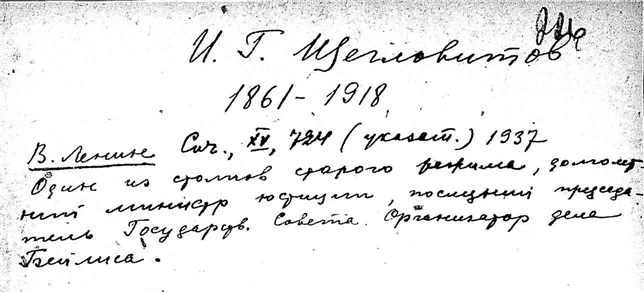 И. Г. Щегловитов
1861-1918
В. Ленин Соч., XV, 724 (указат.) 1937
Один из столпов старого режима, долголет-
ний министр юстиции, последний председа-
тель Государств. Совета. Организатор дела
Бейлиса.